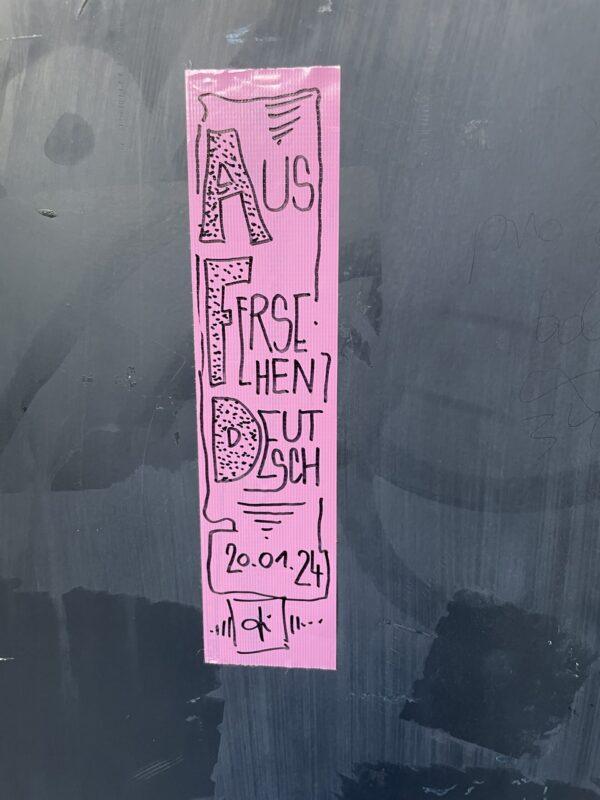 AUS
FERSE·
HEN
DEUT
SCH
20.01.24